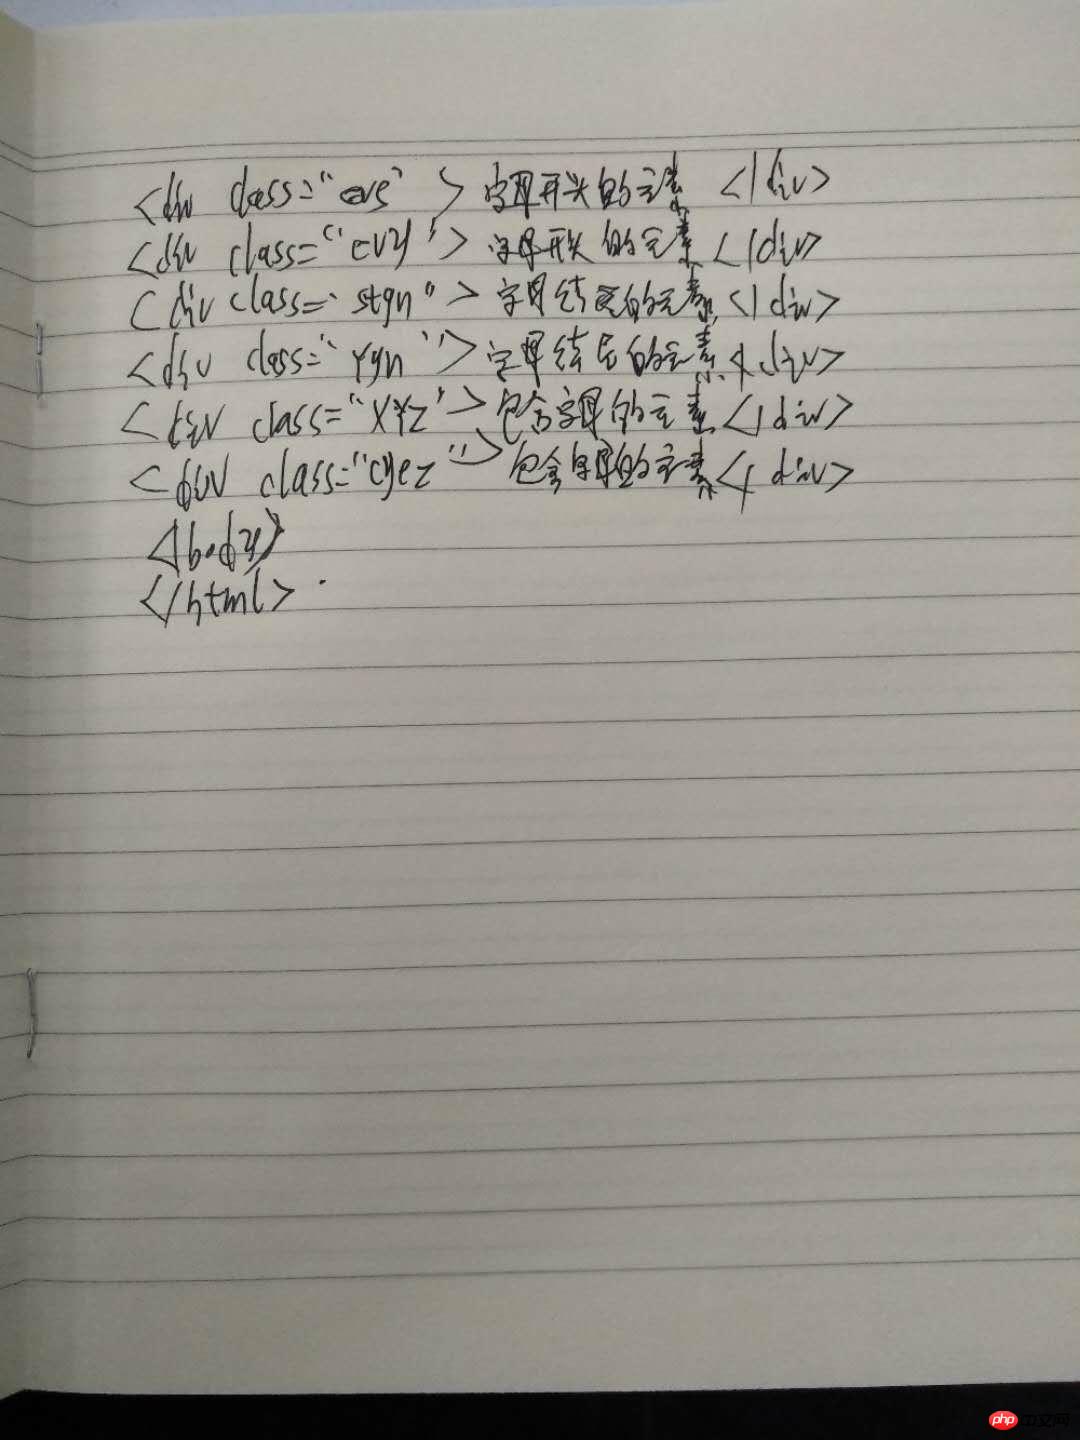 <div class="evs"> 字母开头的元素 </div>
<div class="evy"> 字母开头的元素 </div>
<div class="stgn"> 字母结尾的元素 </div>
<div class="Ygn"> 字母结尾的元素 </div>
<div class="XYz"> 包含字母的元素 </div>
<div class="cyez"> 包含字母的元素 </div>
</body>
</html>
php 中文网